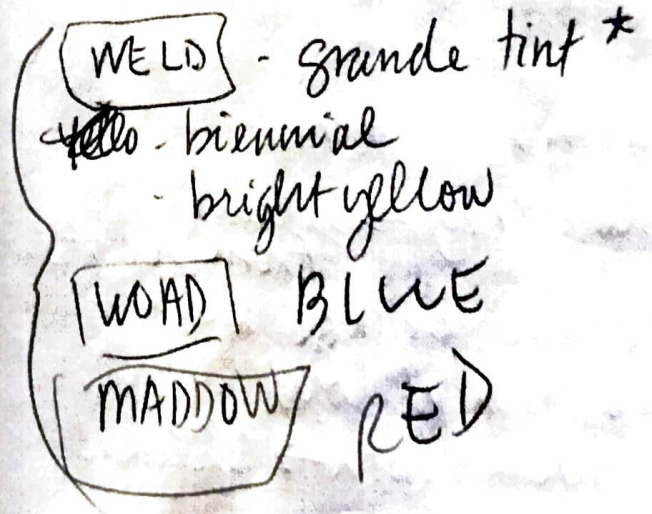 WELD - grande tint *
- biennial
- bright yellow
WOAD BLUE
MADDOW RED